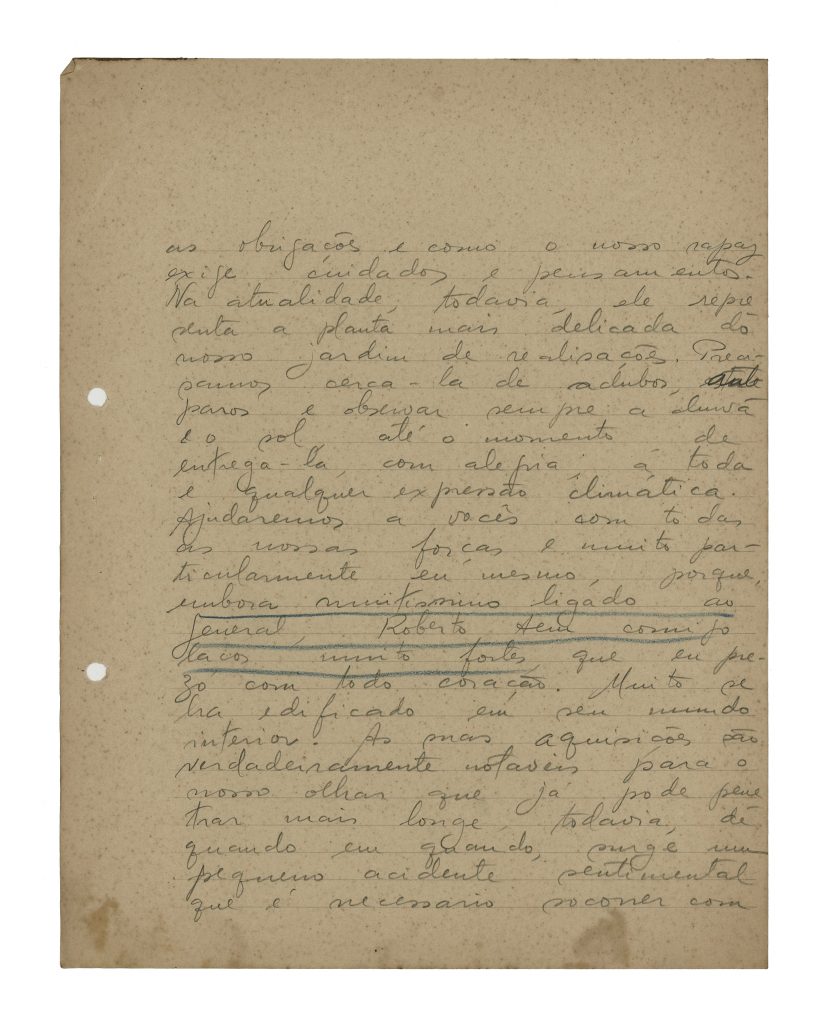 as obrigações e como o nosso rapaz
exige cuidados e pensamentos.
Na atualidade, todavia, ele repre
senta a planta mais delicada do
nosso jardim de realisações. Preci-
samos cerca-la de adubos,
paros e observar sempre a chuva
e o sol, até o momento de
entrega-la, com alegria, á toda
e qualquer expressão climática.
Ajudaremos a vocês com todas
as nossas forças e muito par-
ticularmente eu mesmo, porque,
embora muitissimo ligado ao
General, Roberto tem comigo
laços muito fortes, que eu pre-
zo com todo coração. Muito se
ha edificado em seu mundo
interior. As suas aquisições são
verdadeiramente notaveis para o
nosso olhar que já pode pene
trar mais longe, todavia, de
quando em quando, surge um
pequeno acidente sentimental
que é necessario socorrer com